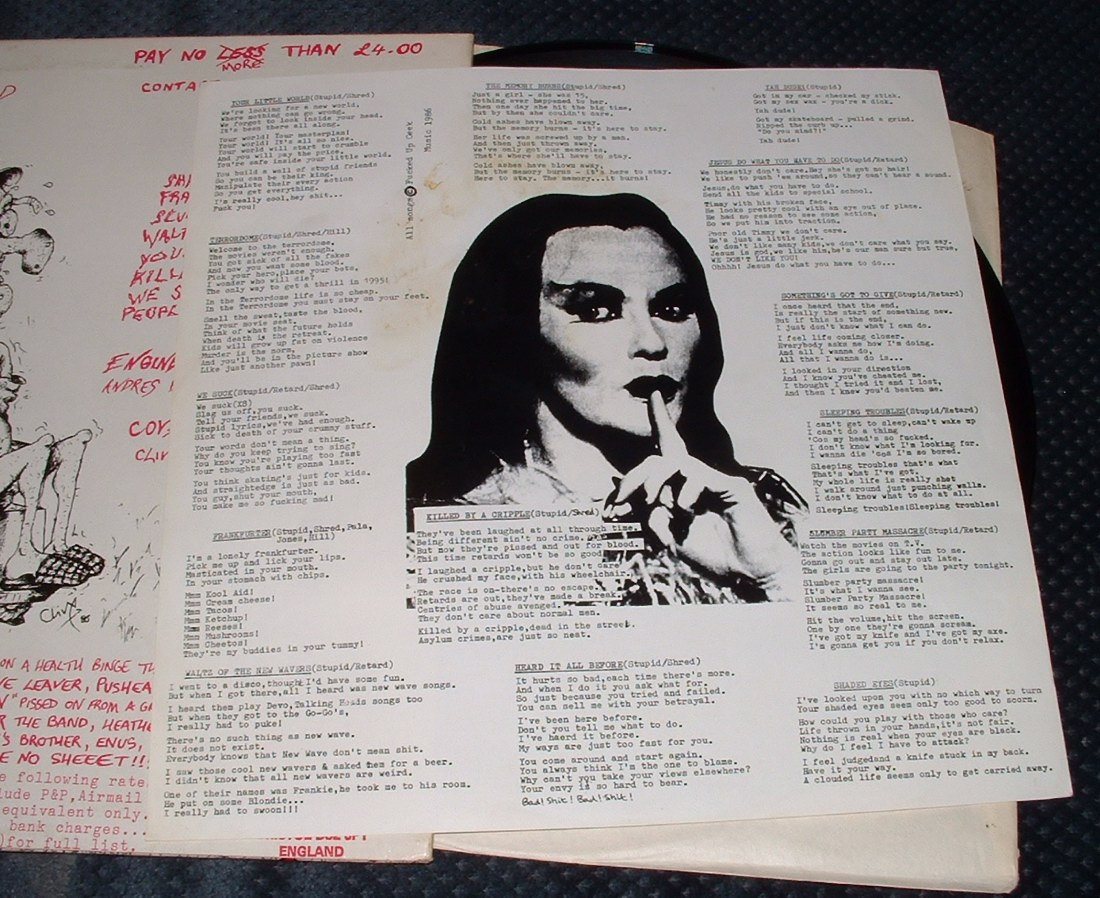 PAY NO LESS THAN £4.00
MORE
CONTA
SHA
FRA
SLU
WALT
YOU
KILL
WE S
PEOPL
ENGINE
ANDRES
COV
CLIV
Clive 86
ON A HEALTH BINGE TH
VE LEAVER, PUSHEA
PISSED ON FROM A G
R THE BAND, HEATH
'S BROTHER, ENUS,
E NO SHEEET!!
e following rate
lude P&P,Airmail
equivalent only.
bank charges...
)for full list.
ENGLAND
YOUR LITTLE WORLD(Stupid/Shred)
We're looking for a new world.
Where nothing can go wrong.
We forgot to look inside your head.
It's been there all along.
Your world! Your masterplan!
Your world! It's all so nice.
Your world will start to crumble
And you will pay the price.
You're safe inside your little world.
You build a wall of stupid friends
So you can be their king.
Manipulate their every action
So you get everything.
I'm really cool,hey shit...
Fuck you!
All songs © Fucked Up Geek
Music 1986
TERRORDOME(Stupid/Shred/Hill)
Welcome to the terrordome,
The movies weren't enough.
You got sick of all the fakes
And now you want some blood.
Pick your hero,place your bets,
I wonder who will die?
The only way to get a thrill in 1995!
In the Terrordome life is so cheap.
In the Terrordome you must stay on your feet.
Smell the sweat,taste the blood,
In your movie seat.
Think of what the future holds
When death is the retreat.
Kids will grow up fat on violence
Murder is the norm,
And you'll be in the picture show
Like just another pawn!
WE SUCK(Stupid/Retard/Shred)
We suck(X8)
Slag us off,you suck.
Tell your friends,we suck.
Stupid lyrics,we've had enough.
Sick to death of your crummy stuff.
Your words don't mean a thing.
Why do you keep trying to sing?
You know you're playing too fast
Your thoughts ain't gonna last.
You think skating's just for kids.
And straightedge is just as bad.
You guy,shut your mouth,
You make me so fucking mad!
FRANKFURTER(Stupid,Shred,Pala,
Jones,Hill)
I'm a lonely frankfurter.
Pick me up and lick your lips.
Masticated in your mouth.
In your stomach with chips.
Mmm Kool Aid!
Mmm Cream cheese!
Mmm Tacos!
Mmm Ketchup!
Mmm Reeses!
Mmm Mushrooms!
Mmm Cheetos!
They're my buddies in your tummy!
WALTZ OF THE NEW WAVERS(Stupid/Retard)
I went to a disco,thought I'd have some fun.
But when I got there,all I heard was new wave songs.
I heard them play Devo,Talking Heads songs too
But when they got to the Go-Go's,
I really had to puke!
There's no such thing as new wave.
It does not exist.
Everybody knows that New Wave don't mean shit.
I saw those cool new wavers & asked them for a beer.
I didn't know that all new wavers are weird.
One of their names was Frankie,he took me to his room.
He put on some Blondie...
I really had to swoon!!!
THE MEMORY BURNS(Stupid/Shred)
Just a girl - she was 15.
Nothing ever happened to her.
Then one day she hit the big time,
But by then she couldn't care.
Cold ashes have blown away.
But the memory burns - it's here to stay.
Her life was screwed up by a man.
And then just thrown away.
We've only got our memories,
That's where she'll have to stay.
Cold ashes have blown away.
But the memory burns - it's here to stay.
Here to stay. The memory...it burns!
KILLED BY A CRIPPLE(Stupid/Shred)
They've been laughed at all through time.
Being different ain't no crime.
But now they're pissed and out for blood.
This time retards won't be so good
I laughed a cripple,but he don't care
He crushed my face,with his wheelchair.
The race is on-there's no escape.
Retards are out,they've made a break.
Centries of abuse avenged.
They don't care about normal men.
Killed by a cripple,dead in the street.
Asylum crimes,are just so neat.
HEARD IT ALL BEFORE(Stupid/Shred)
It hurts so bad,each time there's more.
And when I do it you ask what for.
So just because you tried and failed.
You can sell me with your betrayal.
I've been here before.
Don't you tell me what to do.
I've haerd it before.
My ways are just too fast for you.
You come around and start again.
You always think I'm the one to blame.
Why can't you take your views elsewhere?
Your envy is so hard to bear.
Bad! Shit! Bad! Shit!
YAH DUDE!(Stupid)
Got in my car - checked my stick.
Got my wax wax - you're a dick.
Yah dude!
Got my skateboard - pulled a grind.
Ripped the curb up...
"Do you mind?!"
Yah dude!
JESUS DO WHAT YOU HAVE TO DO(Stupid/Retard)
We honestly don't care.Hey she's got no hair!
We like to push 'em around,so they can't hear a sound.
Jesus,do what you have to do.
Send all the kids to special school.
Timmy with his broken face,
He looks pretty cool with an eye out of place.
He had no reason to see some action,
So we put him into traction.
Poor old Timmy we don't care.
He's just a little jerk.
We don't like many kids,we don't care what you say.
Jesus is god,we like him,he's our man sure but true,
WE DON'T LIKE YOU!
Ohhhh! Jesus do what you have to do...
SOMETHING'S GOT TO GIVE(Stupid/Retard)
I once heard that the end.
Is really the start of something new.
But if this is the end.
I just don't know what I can do.
I feel life coming closer.
Everybody asks me how I'm doing.
And all I wanna do,
All that I wanna do is...
I looked in your direction
And I know you've cheated me.
I thought I tried it and I lost,
And then I knew you'd beaten me.
SLEEPING TROUBLES(Stupid/Retard)
I can't get to sleep,can't wake up
I can't do a thing
'Cos my head's so fucked.
I don't know what I'm looking for.
I wanna die 'cos I'm so bored.
Sleeping troubles that's what
That's what I've got.
My whole life is really shot
I walk around just punching walls.
I don't know what to do at all.
Sleeping troubles!Sleeping troubles!
SLUMBER PARTY MASSACRE(Stupid/Retard)
Watch the movies on T.V.
The action looks like fun to me.
Gonna go out and stay out late.
The girls are going to the party tonight.
Slumber party massacre!
It's what I wanna see.
Slumber Party Massacre!
It seems so real to me.
Hit the volume,hit the screen.
One by one they're gonna scream.
I've got my knife and I've got my axe.
I'm gonna get you if you don't relax.
SHADED EYES(Stupid)
I've looked upon you with no which way to turn
Your shaded eyes seem only too good to scorn.
How could you play with those who care?
Life thrown in your hands,it's not fair.
Nothing is real when your eyes are black.
Why do I feel I have to attack?
I feel judgeand a knife stuck in my back.
Have it your way.
A clouded life seems only to get carried away.